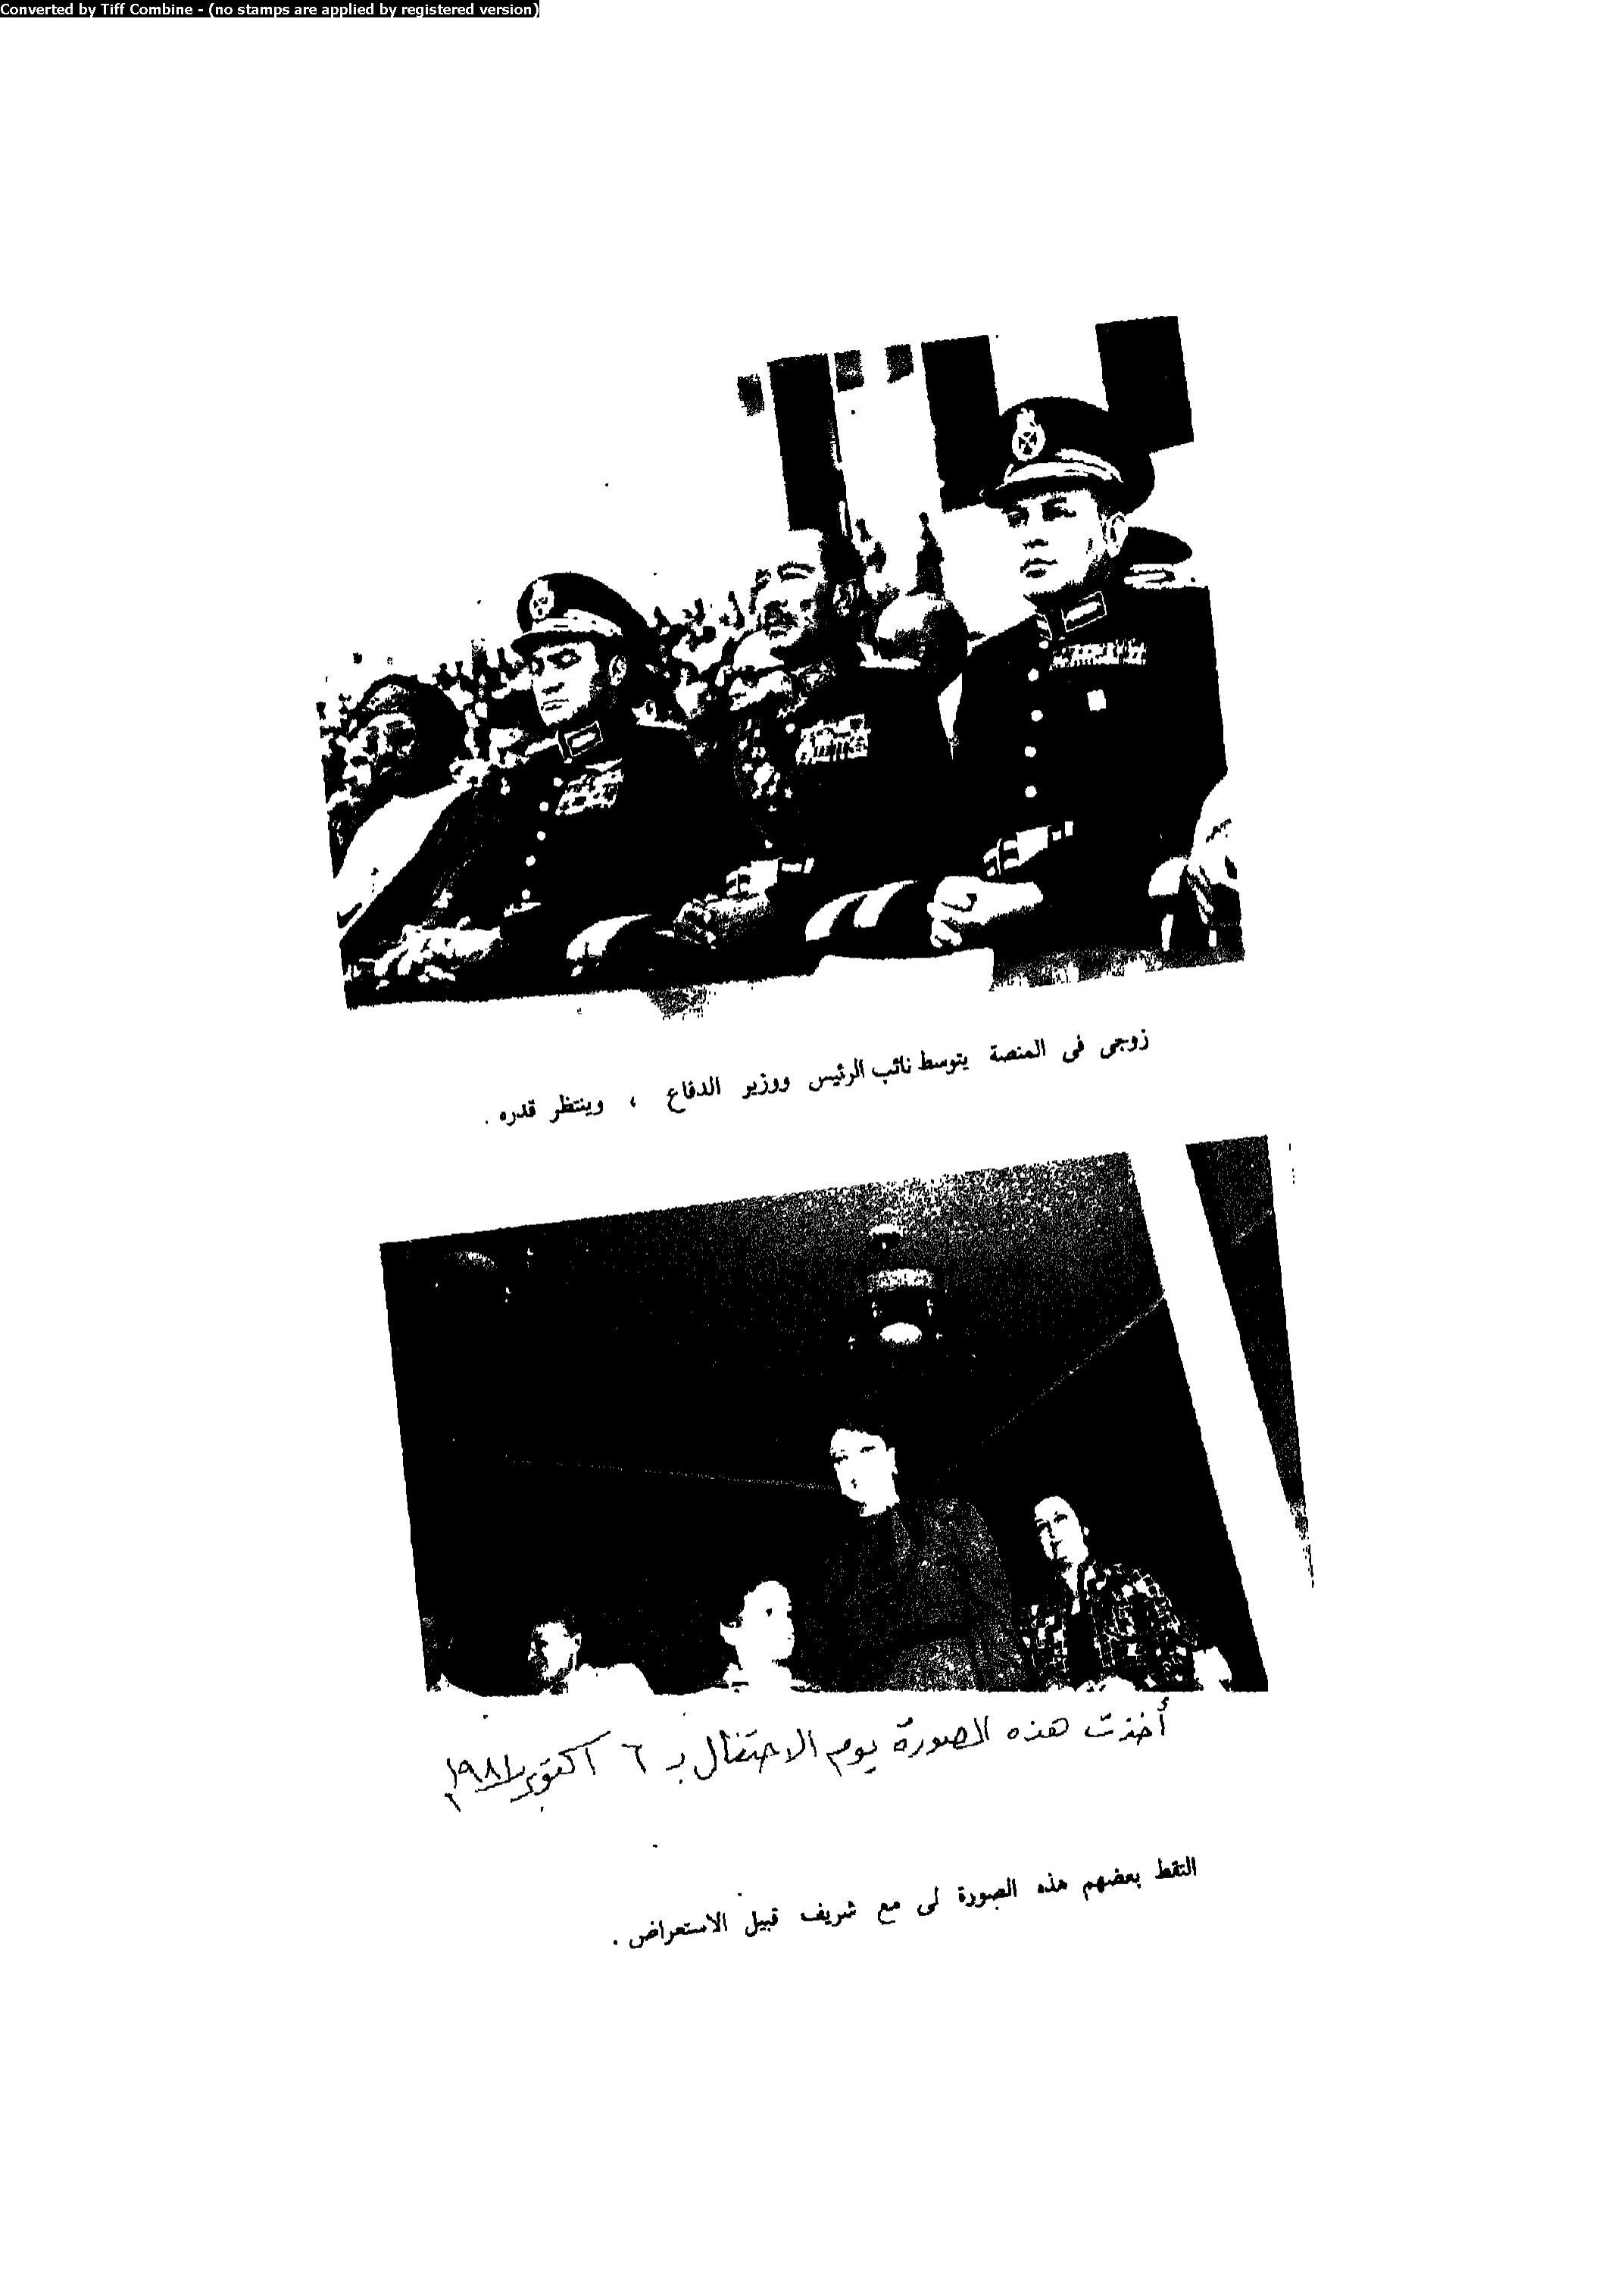 Converted by Tiff Combine - (no stamps are applied by registered version)
زوجى فى المنصة يتوسط نائب الرئيس ووزير الدفاع ، وينتظر قدره .
أخذت هذه الصورة يوم الاحتفال بـ ٦ أكتوبر ١٩٨١
التقط بعضهم هذه الصورة لى مع شريف قبيل الاستعراض .